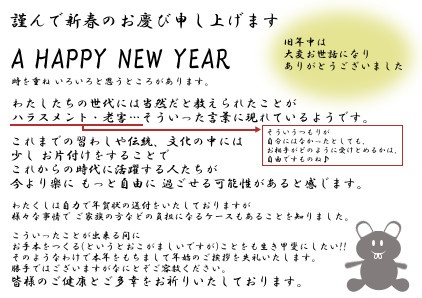 謹んで新春のお慶び申し上げます
旧年中は
大変お世話になり
ありがとうございました
A HAPPY NEW YEAR
時を重ね いろいろと思うところがあります。
わたしたちの世代には当然だと教えられたことが
ハラスメント・老害…そういった言葉に現れているようです。
そういうつもりが
自分にはなかったとしても、
お相手がどのように受けとめるかは、
自由ですものね♪
これまでの習わしや伝統、文化の中には
少し お片付けをすることで
これからの時代に活躍する人たちが
今より楽に もっと自由に 過ごせる可能性があると感じます。
わたくしは自力で年賀状の送付をいたしておりますが
様々な事情で ご家族の方などの負担になるケースもあることを知りました。
こういったことが出来る間に
お手本をつくる(というとおこがましいですが)ことをも生き甲斐にしたい!!
そのようなわけで本年をもちまして年始のご挨拶を失礼いたします。
勝手ではございますがなにとぞご容赦ください。
皆様のご健康とご多幸をお祈りいたしております。